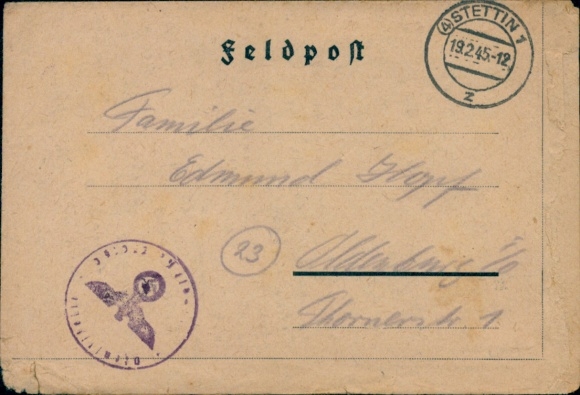 Feldpost
(4) STETTIN 1
19.2.45.-12
z
Familie
Edmund Hopf
23 Oldenburg i/O
Thornerstr 1